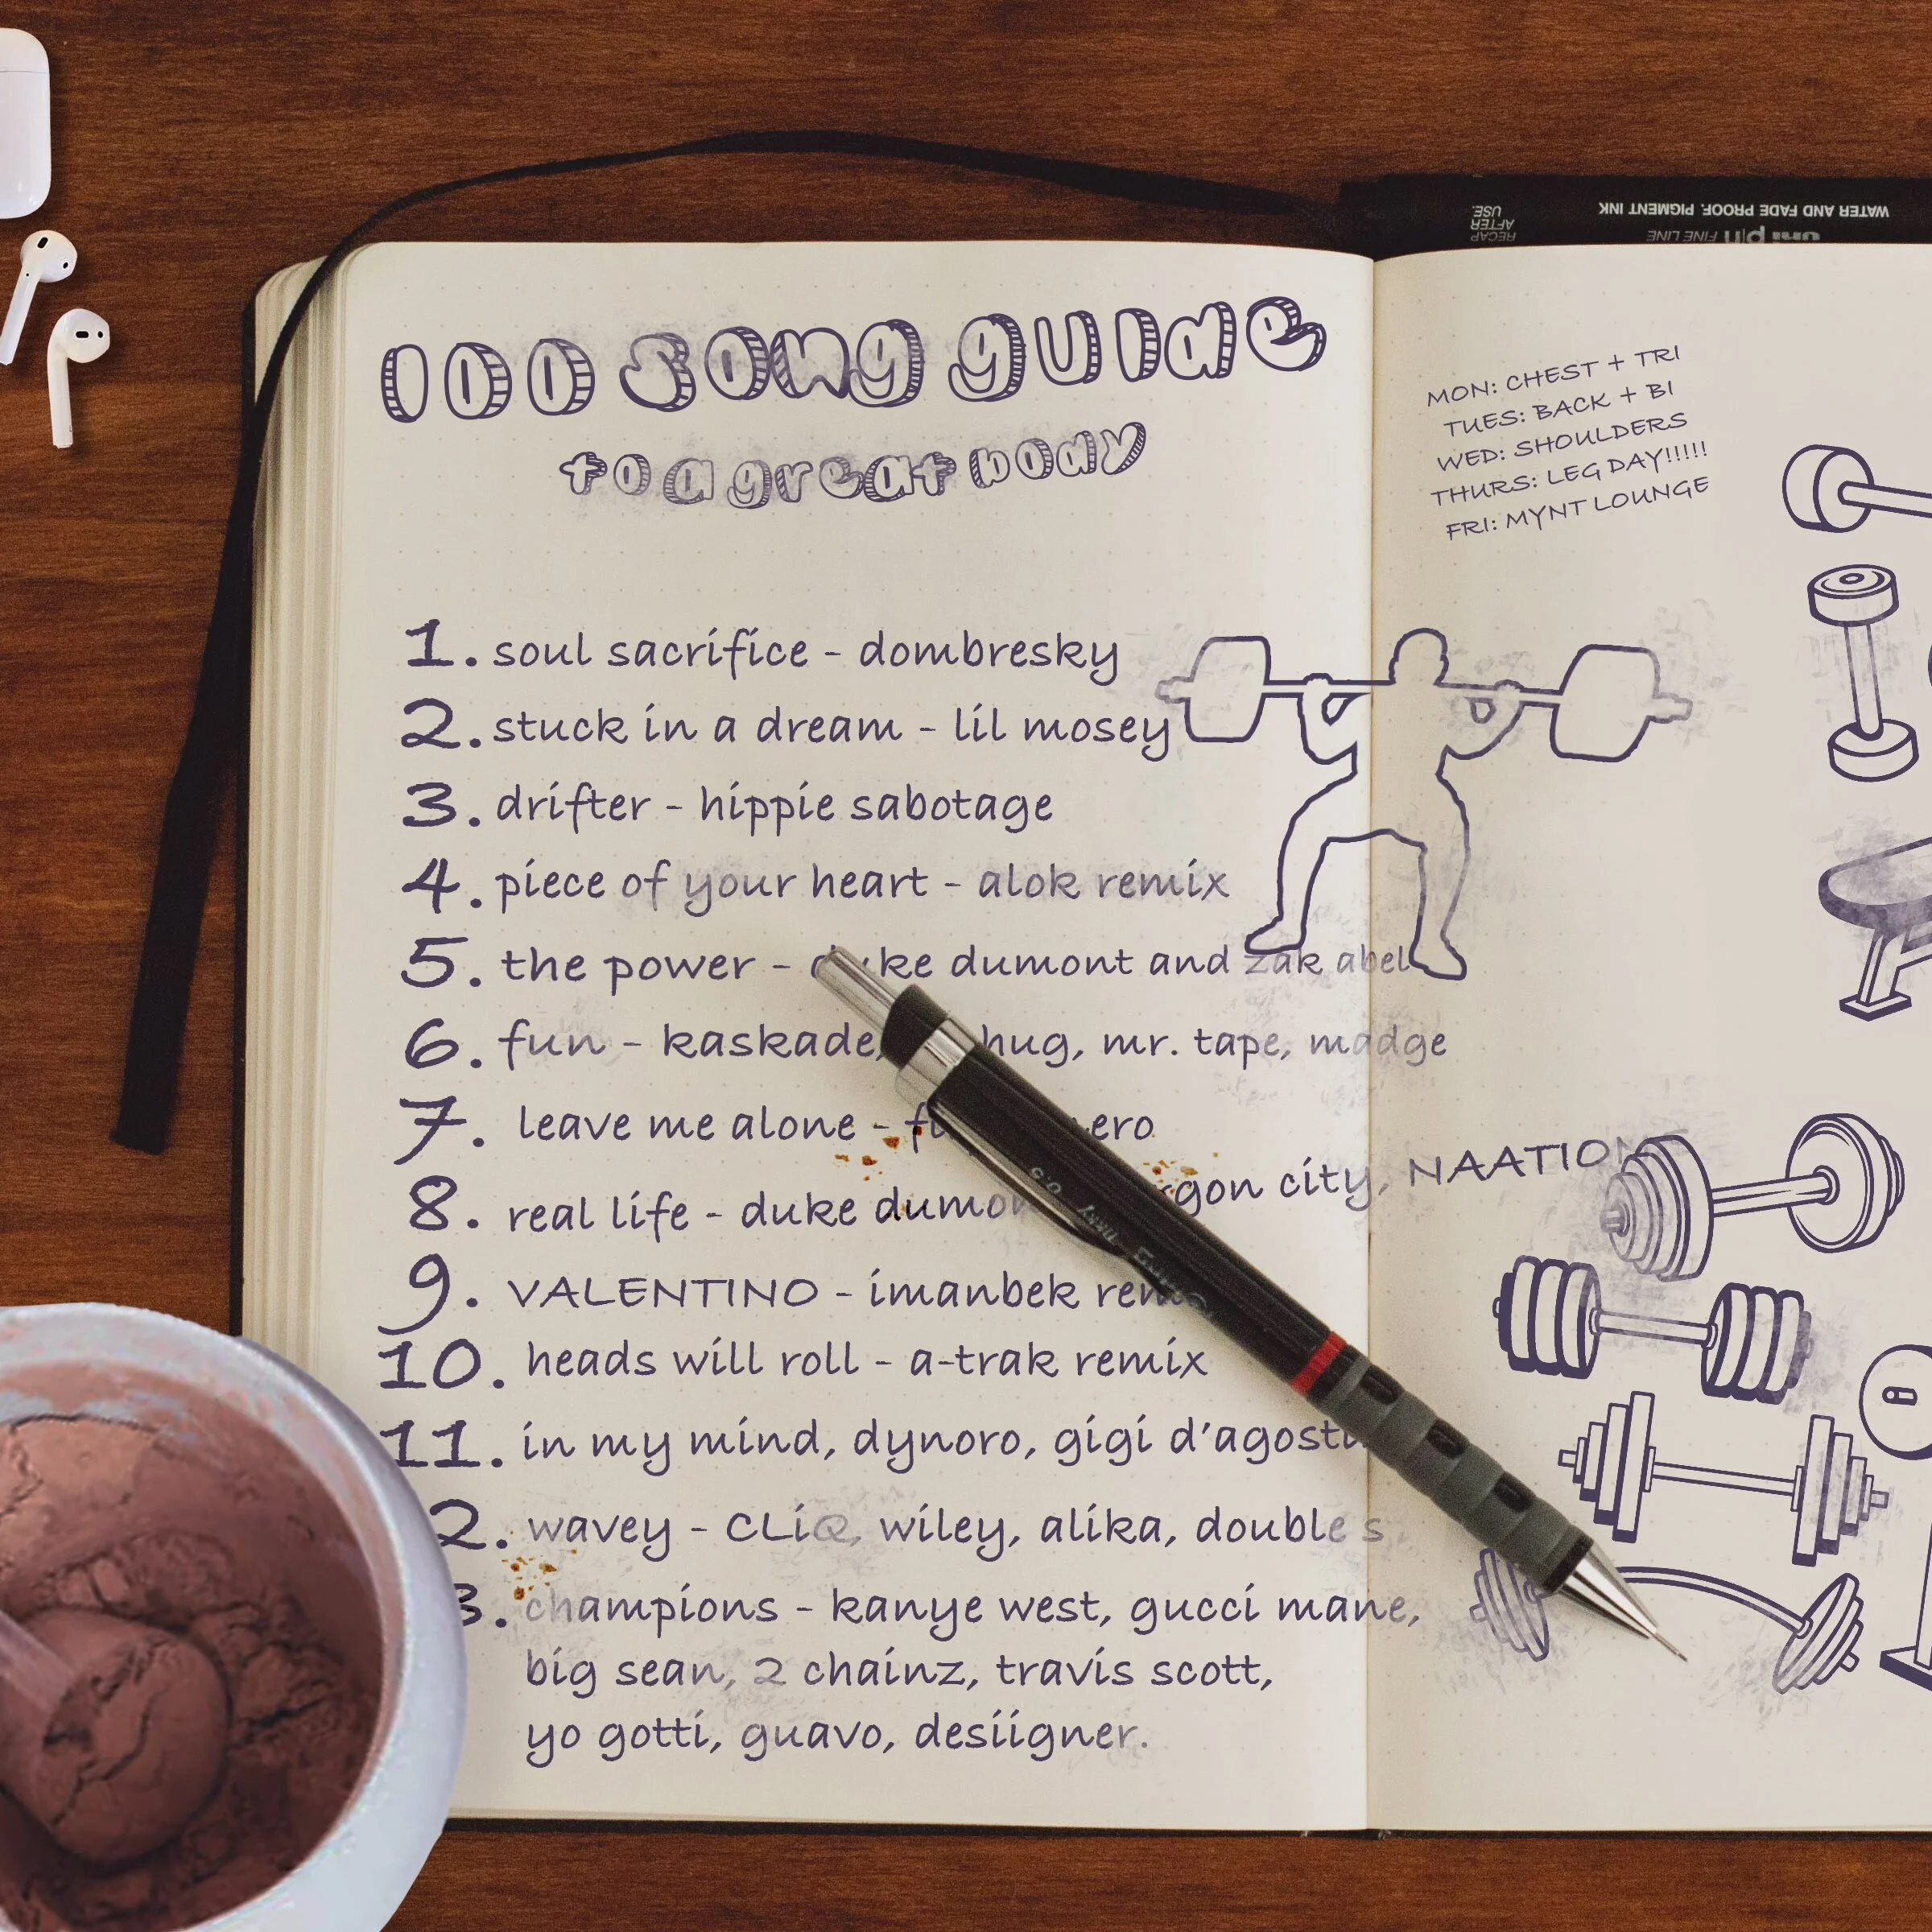 RECAP
AFTER
USE.
WATER AND FADE PROOF. PIGMENT INK
uni pin FINE LINE
100 song guide
to a great body
1. soul sacrifice - dombresky
2. stuck in a dream - lil mosey
3. drifter - hippie sabotage
4. piece of your heart - alok remix
5. the power - duke dumont and zak abel
6. fun - kaskade, hug, mr. tape, madge
7. leave me alone -
8. real life - duke dumont city, NAATIONS
9. VALENTINO - imanbek remix
10. heads will roll - a-trak remix
11. in my mind, dynoro, gigi
2. wavey - CLiQ, wiley, alika, double s
3. champions - kanye west, gucci mane,
big sean, 2 chainz, travis scott,
yo gotti, guavo, desiigner.
MON: CHEST + TRI
TUES: BACK + BI
WED: SHOULDERS
THURS: LEG DAY!!!!!
FRI: MYNT LOUNGE